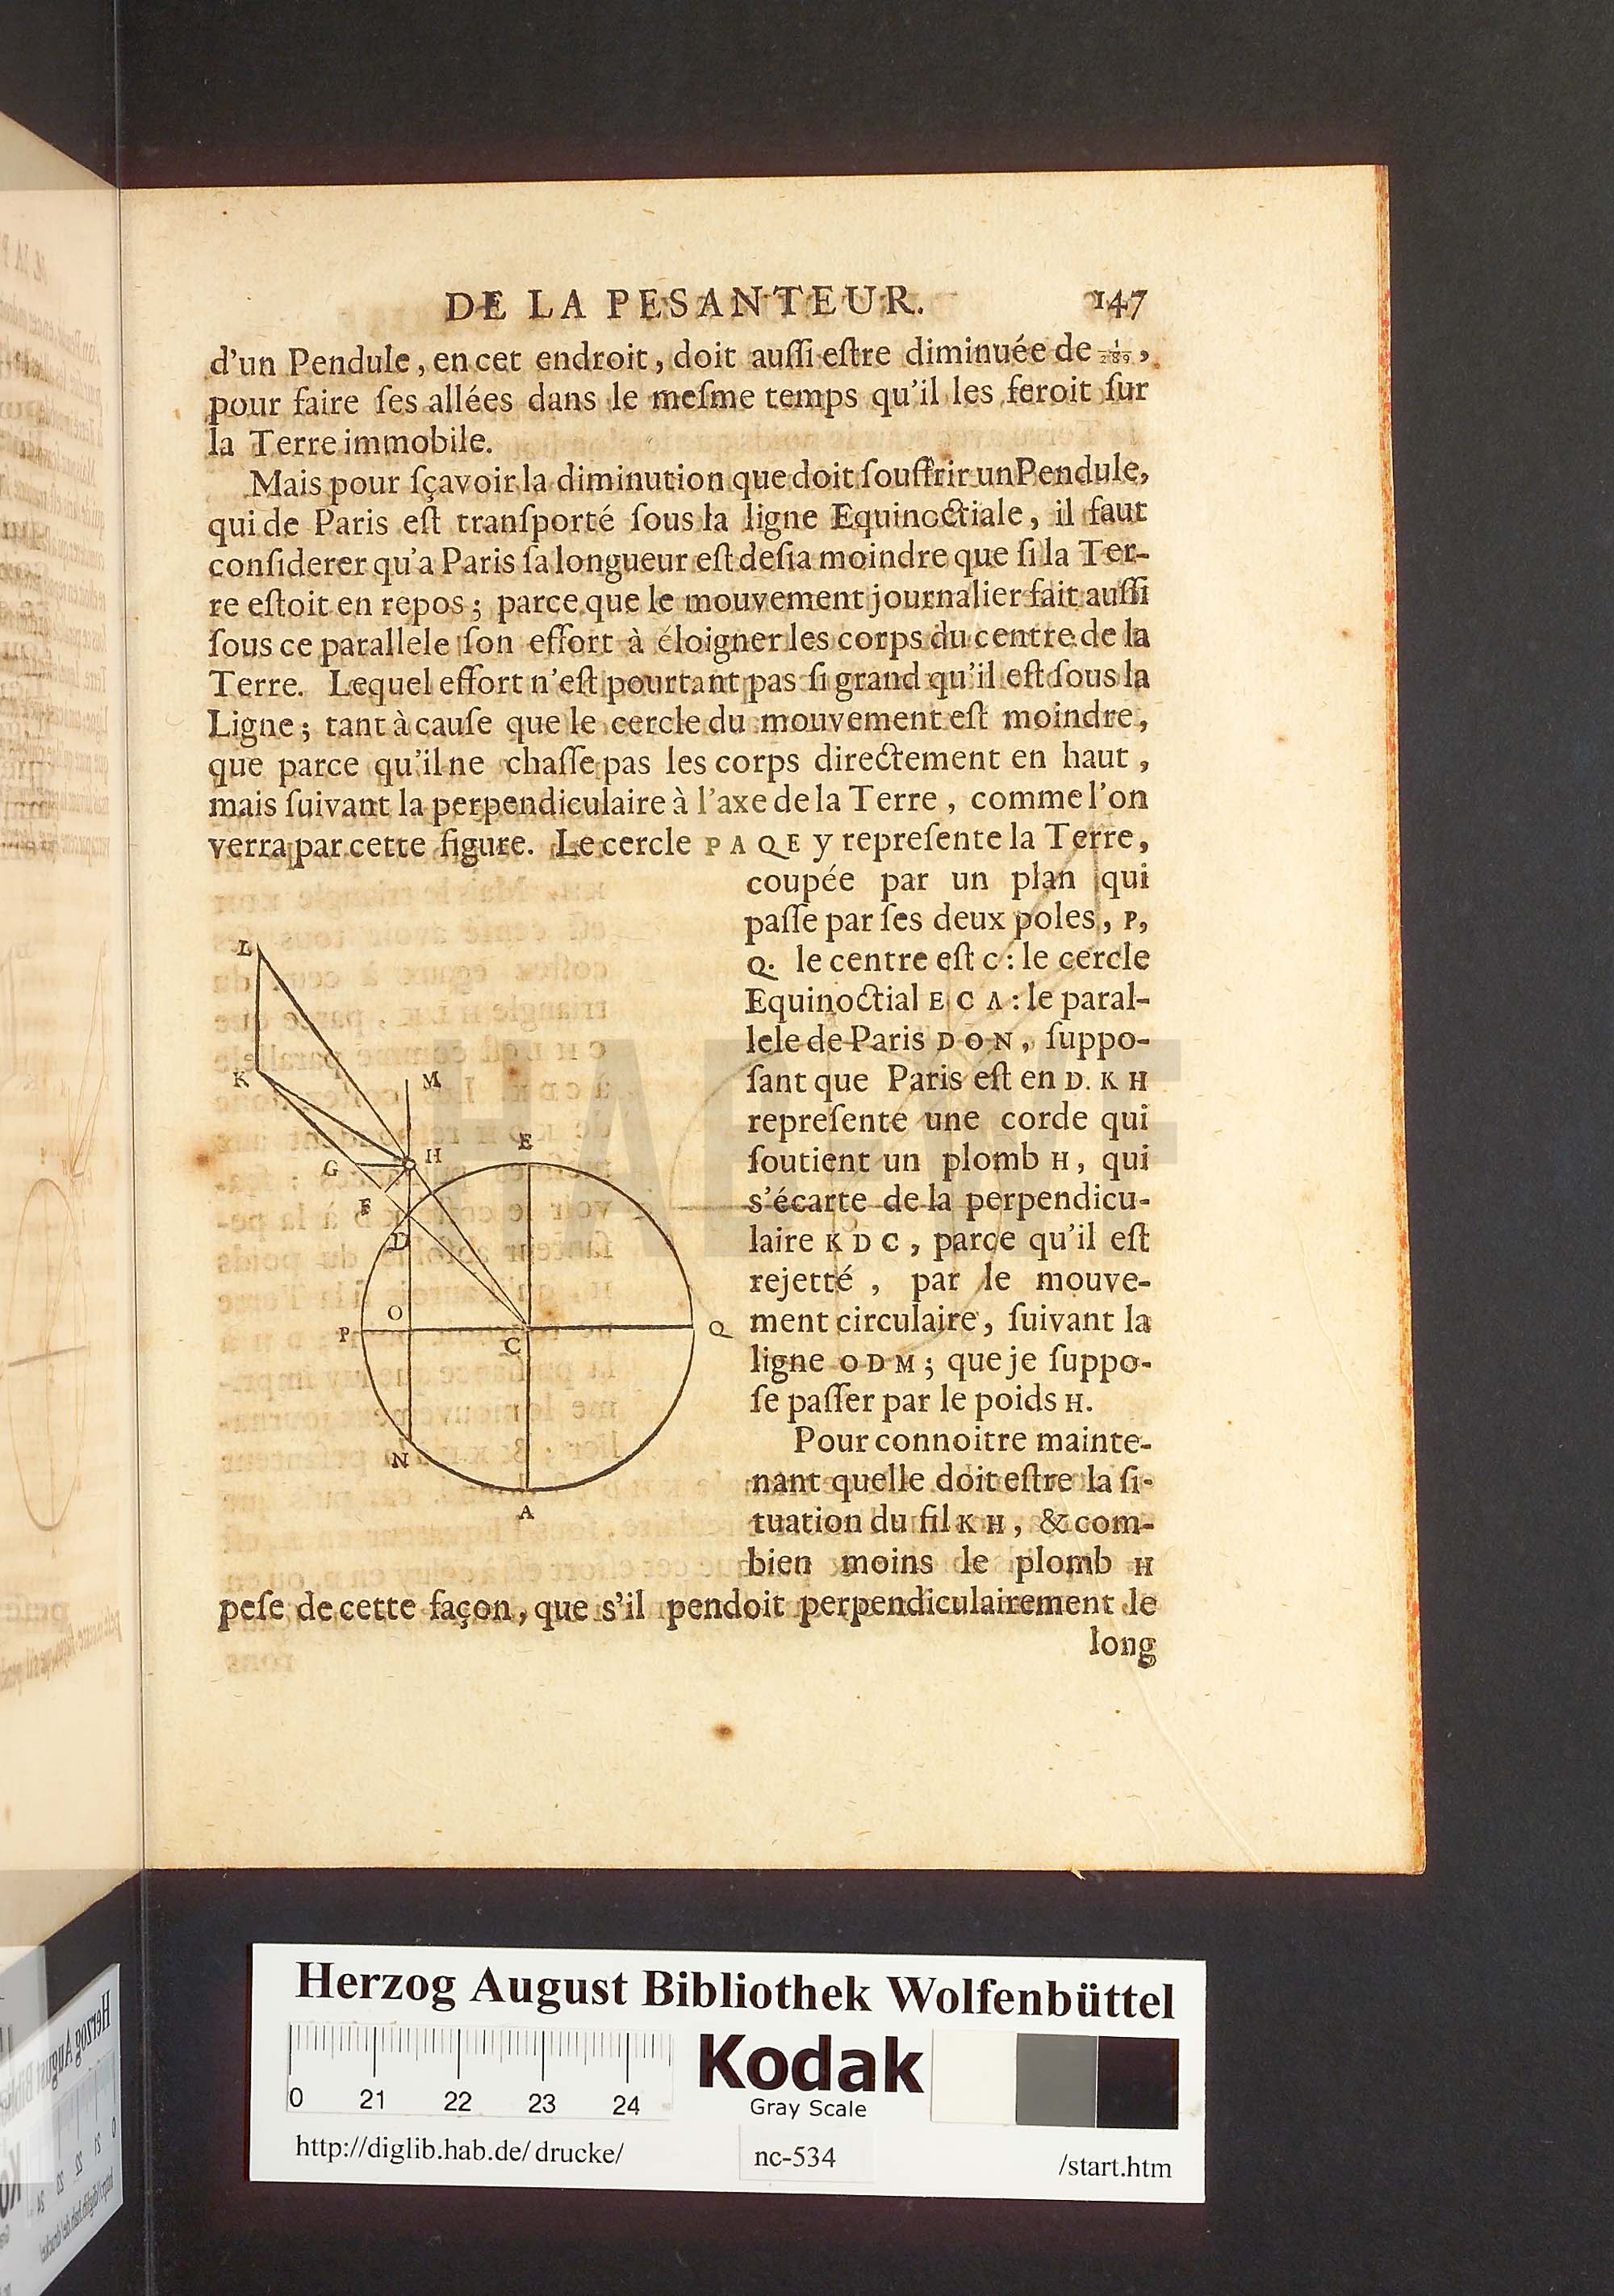 DE LA PESANTEUR. 147
d'un Pendule, en cet endroit, doit auſſi eſtre diminuée de 1/289,
pour faire ſes allées dans le meſme temps qu'il les feroit ſur
la Terre immobile.
Mais pour ſçavoir la diminution que doit ſouffrir un Pendule,
qui de Paris eſt tranſporté ſous la ligne Equinoctiale, il faut
conſiderer qu'a Paris ſa longueur eſt deſia moindre que ſi la Ter-
re eſtoit en repos; parce que le mouvement journalier fait auſſi
ſous ce parallele ſon effort à éloigner les corps du centre de la
Terre. Lequel effort n'eſt pourtant pas ſi grand qu'il eſt ſous la
Ligne; tant à cauſe que le cercle du mouvement eſt moindre,
que parce qu'il ne chaſſe pas les corps directement en haut,
mais ſuivant la perpendiculaire à l'axe de la Terre, comme l'on
verra par cette figure. Le cercle P A Q E y repreſente la Terre,
coupée par un plan qui
paſſe par ſes deux poles, P,
Q. le centre eſt C: le cercle
Equinoctial E C A: le paral-
lele de Paris D O N, ſuppo-
ſant que Paris eſt en D. K H
repreſente une corde qui
ſoutient un plomb H, qui
s'écarte de la perpendicu-
laire K D C, parce qu'il eſt
rejetté, par le mouve-
ment circulaire, ſuivant la
ligne O D M; que je ſuppo-
ſe paſſer par le poids H.
Pour connoitre mainte-
nant quelle doit eſtre la ſi-
tuation du fil K H, & com-
bien moins le plomb H
peſe de cette façon, que s'il pendoit perpendiculairement le
long
L
K
M
H
E
G
F
D
O
P
C
Q
N
A
HAB
Herzog August Bibliothek Wolfenbüttel
0 21 22 23 24
Kodak
Gray Scale
http://diglib.hab.de/drucke/
nc-534
/start.htm